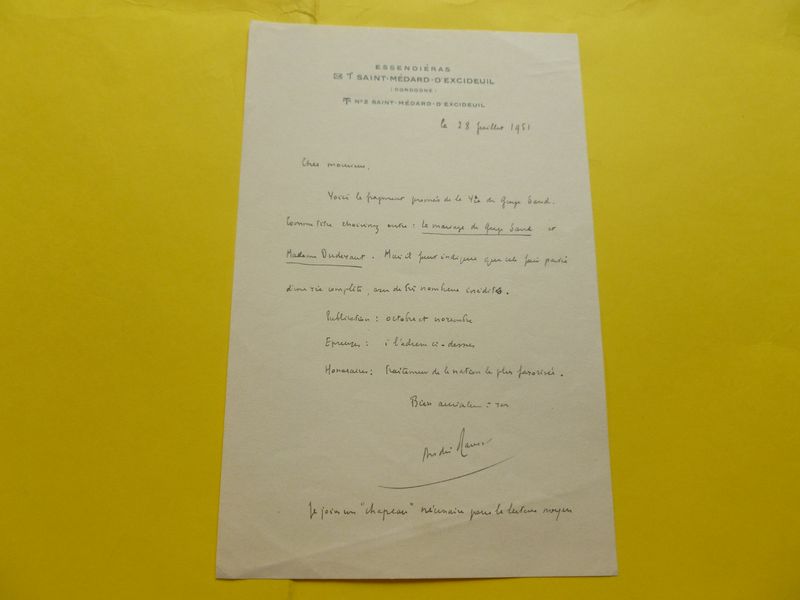 ESSENDIÉRAS
SAINT-MÉDARD-D'EXCIDEUIL
(DORDOGNE)
N° 2 SAINT-MÉDARD-D'EXCIDEUIL
le 28 Juillet 1951
Cher monsieur,
Voici le fragment promis de la Vie de George Sand.
Comme titre choisissez entre : Le mariage de George Sand et
Madame Dudevant. Mais il faut indiquer que cela fait partie
d'une vie complète, avec de très nombreux inédits.
Publication : octobre et novembre
Epreuves : à l'adresse ci-dessus
Honoraires : traitement de la nation la plus favorisée.
Bien
André Maurois
Je joins un "chapeau" nécessaire pour le lecteur moyen